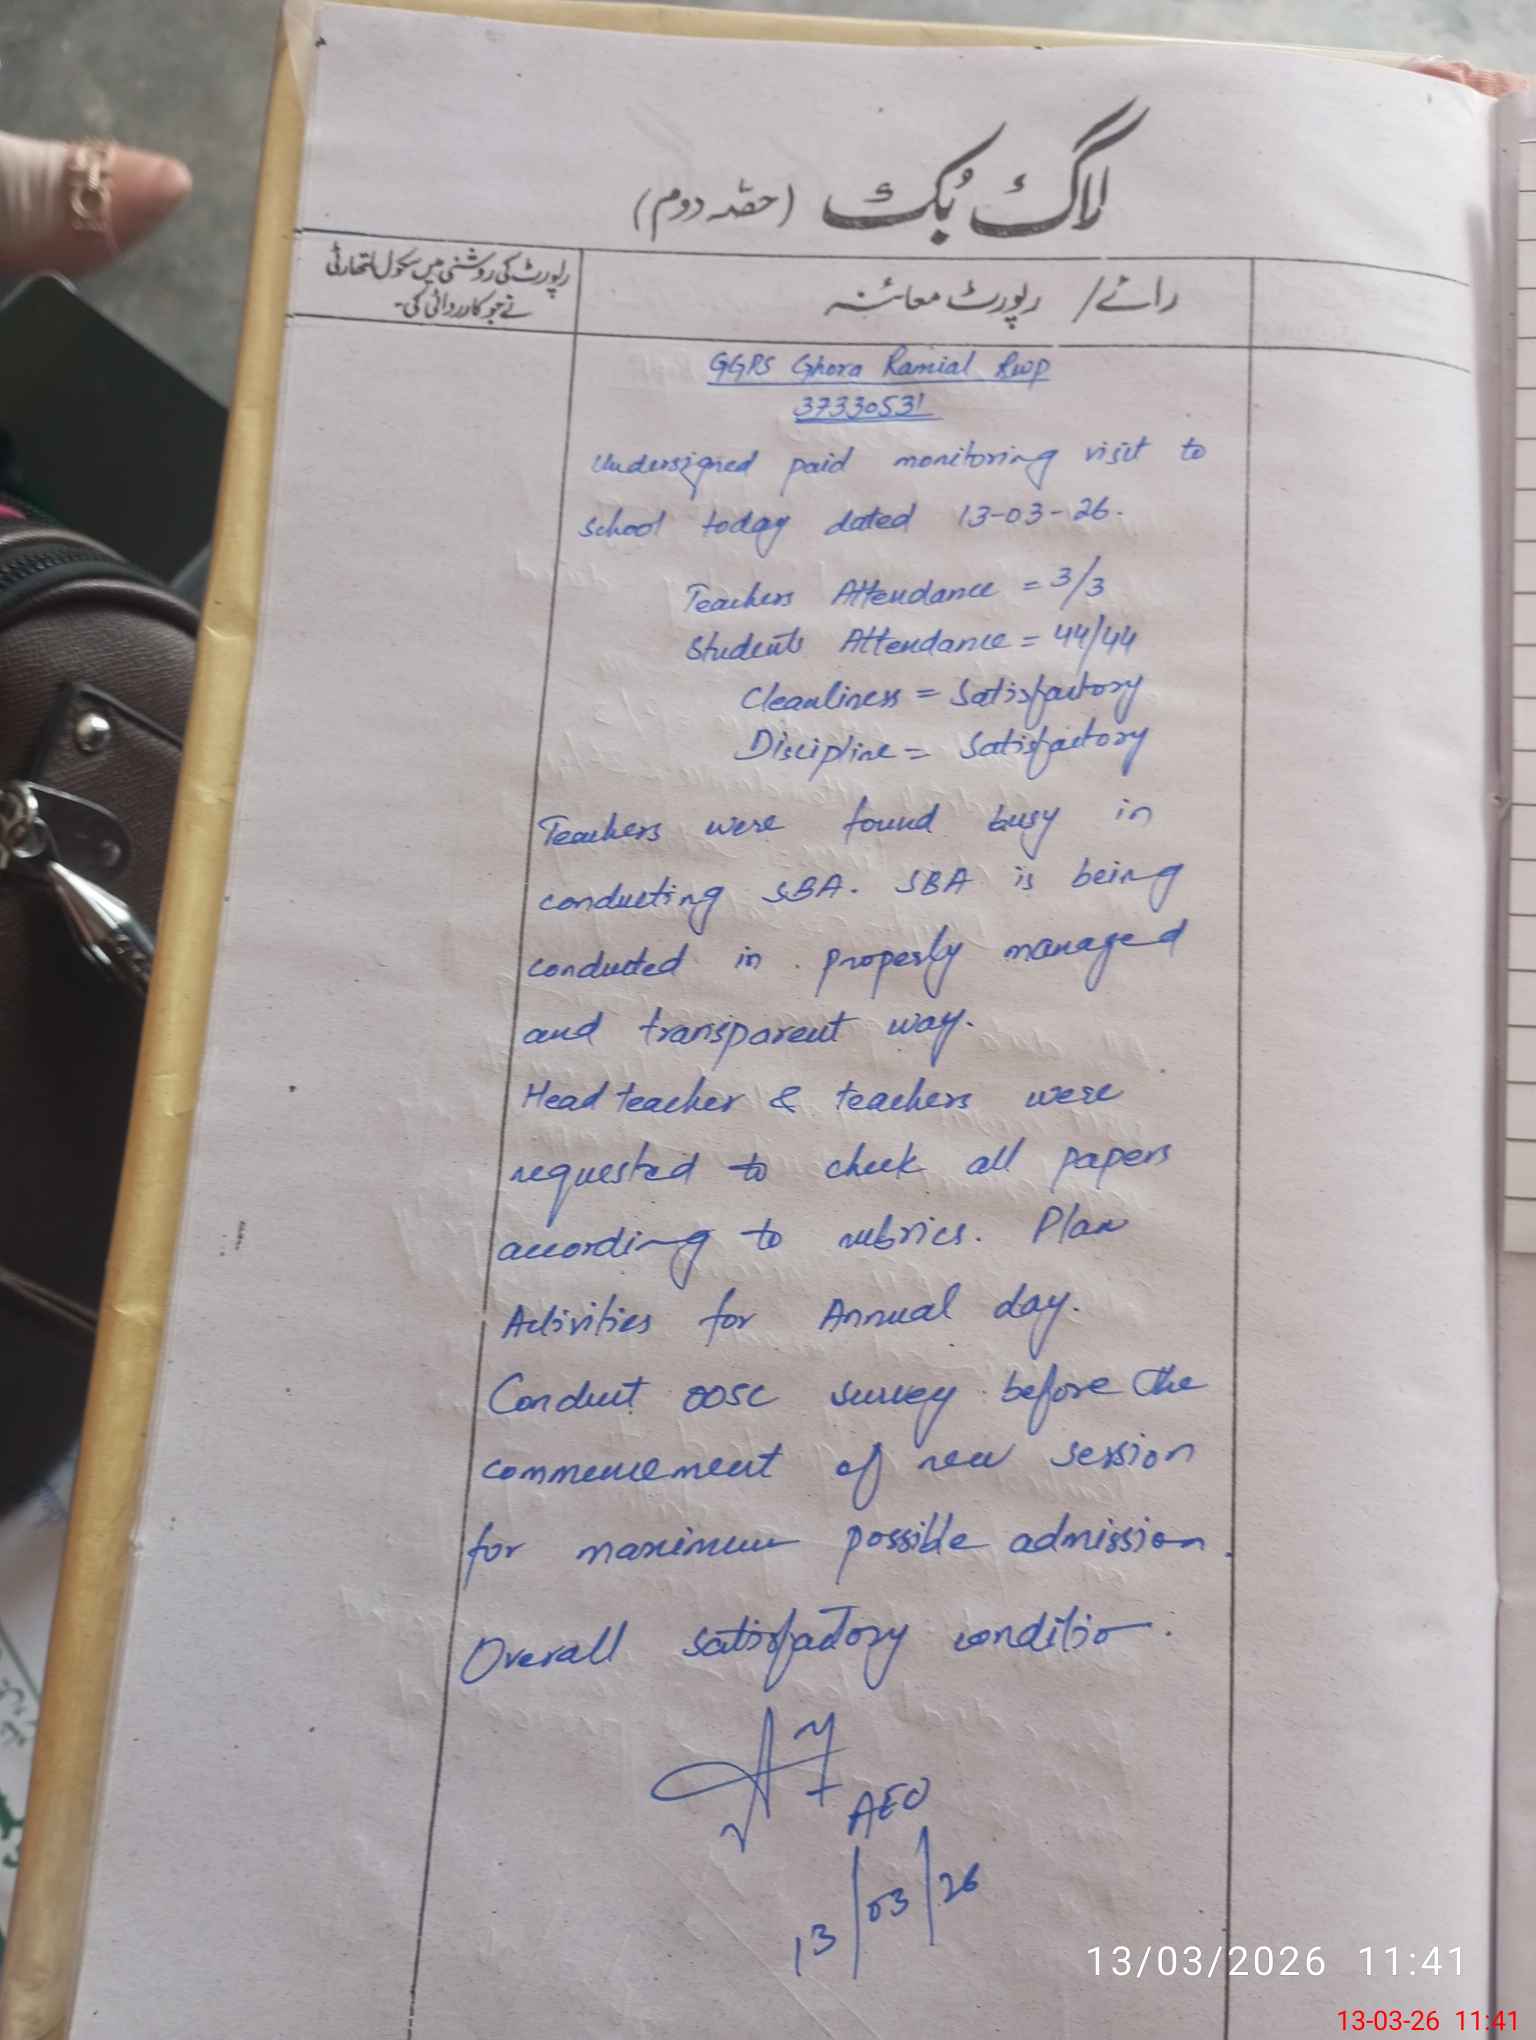 لاگ بُک (حصّہ دوم)
رائے / رپورٹ معائنہ
رپورٹ کی روشنی میں سکول اتھارٹی
نے جو کارروائی کی۔
GGPS Ghora Ramial Rwp
37330531
Undersigned paid monitoring visit to
school today dated 13-03-26.
Teachers Attendance = 3/3
Students Attendance = 44/44
Cleanliness = Satisfactory
Discipline = Satisfactory
Teachers were found busy in
conducting SBA. SBA is being
conducted in properly managed
and transparent way.
Head teacher & teachers were
requested to check all papers
according to rubrics. Plan
Activities for Annual day.
Conduct OOSC survey before the
commencement of new session
for maximum possible admission.
Overall satisfactory condition.
AEO
13/03/26
13/03/2026 11:41
13-03-26 11:41